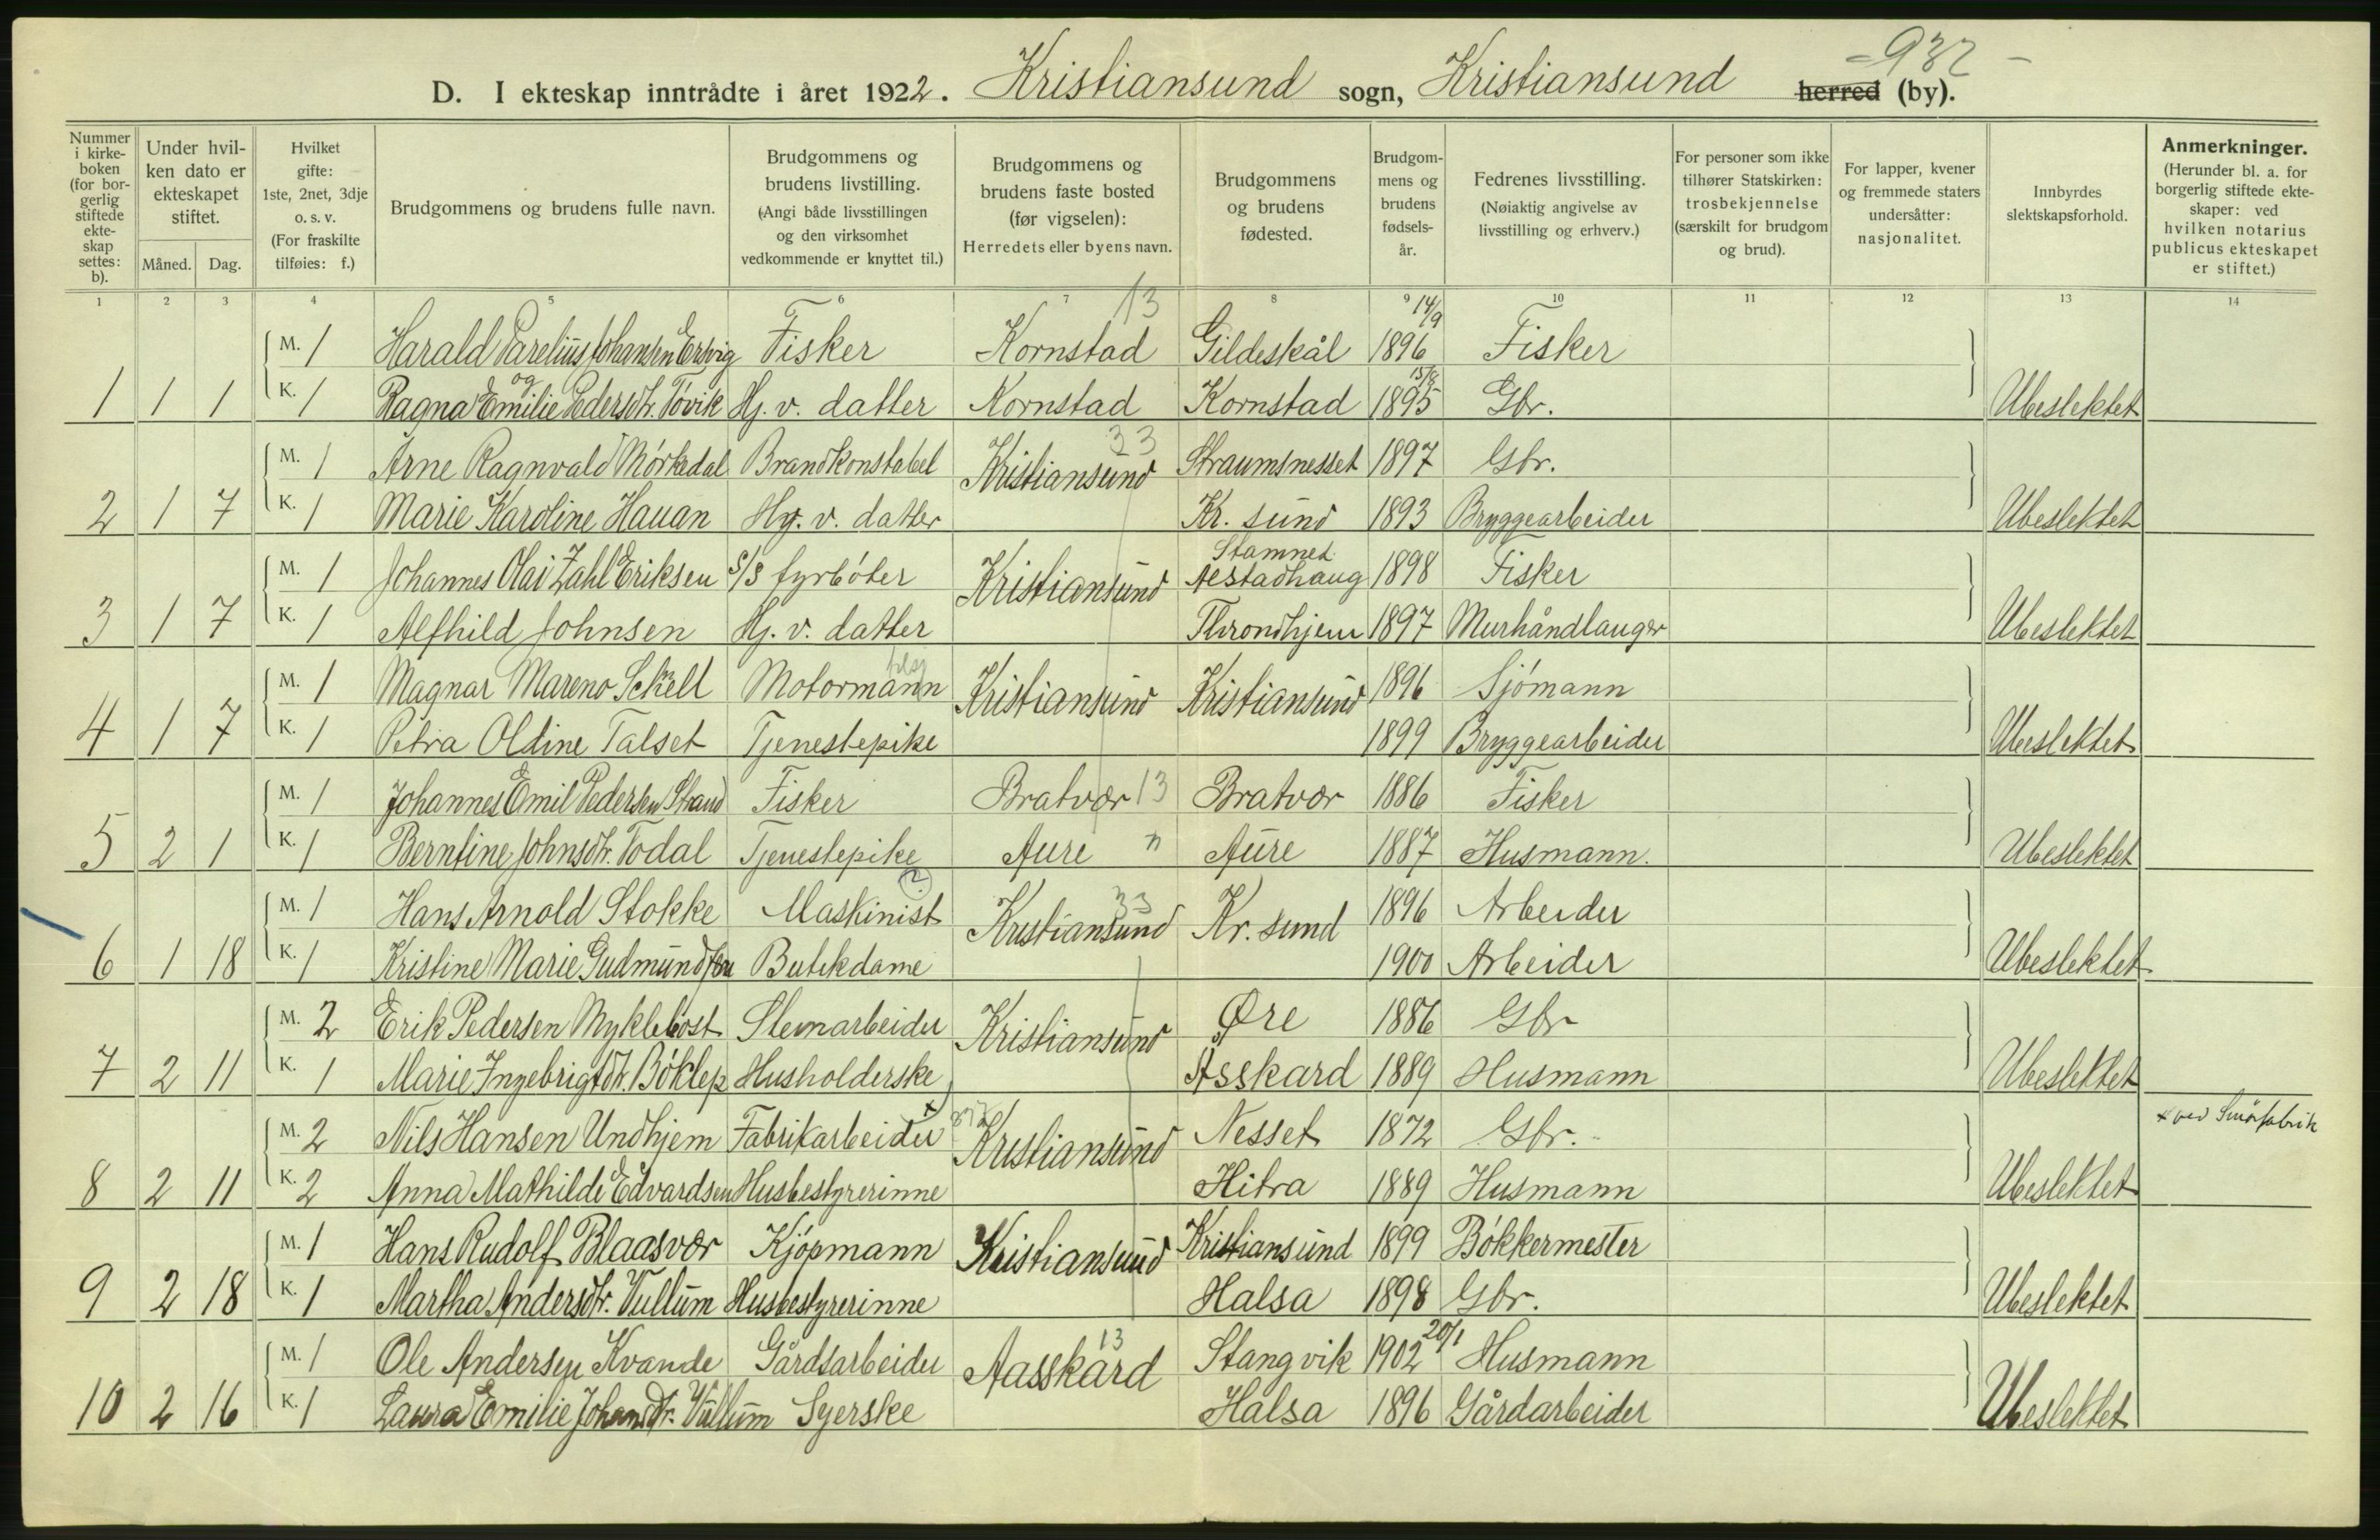 - 932 -
D. I ekteskap inntrådte i året 1922. Kristiansund sogn, Kristiansund herred (by).
Nummer i kirke-boken (for bor-gerlig stiftede ekte-skap settes: b).
Under hvil-ken dato er ekteskapet stiftet.
Måned. Dag.
Hvilket gifte: 1ste, 2net, 3dje o. s. v. (For fraskilte tilføies: f.)
Brudgommens og brudens fulle navn.
Brudgommens og brudens livstilling. (Angi både livsstillingen og den virksomhet vedkommende er knyttet til.)
Brudgommens og brudens faste bosted (før vigselen): Herredets eller byens navn.
Brudgommens og brudens fødested.
Brudgom-mens og brudens fødsels-år.
Fedrenes livsstilling. (Nøiaktig angivelse av livsstilling og erhverv.)
For personer som ikke tilhører Statskirken: trosbekjennelse (særskilt for brudgom og brud).
For lapper, kvener og fremmede staters undersåtter: nasjonalitet.
Innbyrdes slektskapsforhold.
Anmerkninger. (Herunder bl. a. for borgerlig stiftede ekte-skaper: ved hvilken notarius publicus ekteskapet er stiftet.)
1 2 3 4 5 6 7 8 9 10 11 12 13 14
13 14/9
M. 1 Harald Parelius Johansen Ersvig Fisker Kornstad Gildeskål 1896 Fisker
og 15/8
1 1 1 K. 1 Ragna Emilie Pedersdtr. Tövik Hj. v. datter Kornstad Kornstad 1895 Gbr. Ubeslektet
33
M. 1 Arne Ragnvald Mörkedal Brandkonstabel Kristiansund Straumsnesset 1897 Gbr.
2 1 7 K. 1 Marie Karoline Hauan Hj. v. datter Kr. sund 1893 Bryggearbeider Ubeslektet
Stamnes
M. 1 Johannes Olai Zahl Eriksen S/S fyrböter Kristiansund Alstadhaug 1898 Fisker
3 1 7 K. 1 Alfhild Johnsen Hj. v. datter Throndhjem 1897 Murhåndlanger Ubeslektet
M. 1 Magnar Mareno Sckell Motormann Kristiansund Kristiansund 1896 Sjömann
4 1 7 K. 1 Petra Oldine Talset Tjenestepike 1899 Bryggearbeider Ubeslektet
M. 1 Johannes Emil Pedersen Strand Fisker Bratvær 13 Bratvær 1886 Fisker
5 2 1 K. 1 Berntine Johnsdtr. Todal Tjenestepike Aure " Aure 1887 Husmann. Ubeslektet
33
M. 1 Hans Arnold Stokke Maskinist (?) Kristiansund Kr. sund 1896 Arbeider
6 1 18 K. 1 Kristine Marie Gudmundsen Butikdame 1900 Arbeider Ubeslektet
M. 2 Erik Pedersen Myklebost Stenarbeider Kristiansund Øre 1886 Gbr
7 2 11 K. 1 Marie Ingebrigtdtr. Böklep Husholderske Åsskard 1889 Husmann Ubeslektet
M. 2 Nils Hansen Undhjem Fabrikarbeider x Kristiansund Nesset 1872 Gbr. x ved Smörfabrik
8 2 11 K. 2 Anna Mathilde Edvardsen Husbestyrerinne Hitra 1889 Husmann Ubeslektet
M. 1 Hans Rudolf Blaasvær Kjöpmann Kristiansund Kristiansund 1899 Bökkermester
9 2 18 K. 1 Martha Andersdtr. Vullum Husbestyrerinne Halsa 1898 Gbr. Ubeslektet
13 20/1
M. 1 Ole Andersen Kvande Gårdsarbeider Aasskard Stangvik 1902 Husmann
10 2 16 K. 1 Laura Emilie Johansdtr. Vullum Syerske Halsa 1896 Gårdarbeider Ubeslektet